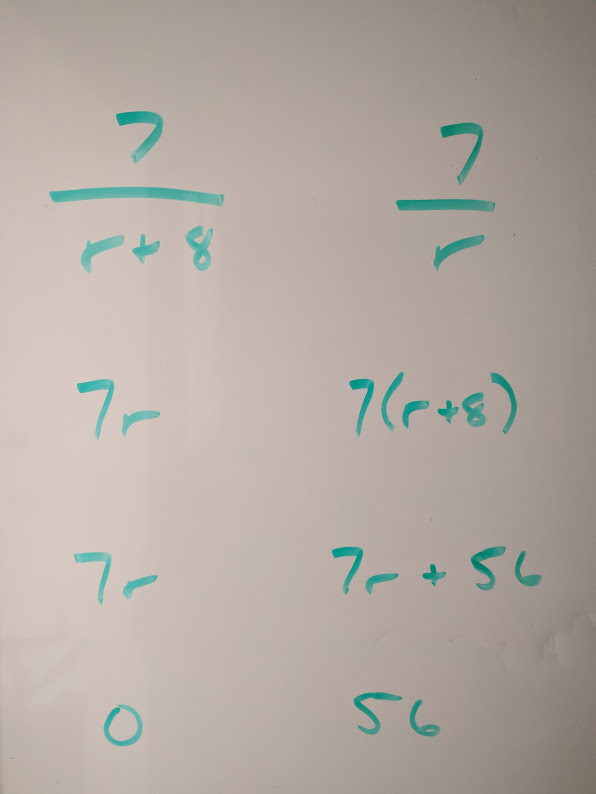 7/(r+8) 7/r
7r 7(r+8)
7r 7r + 56
0 56